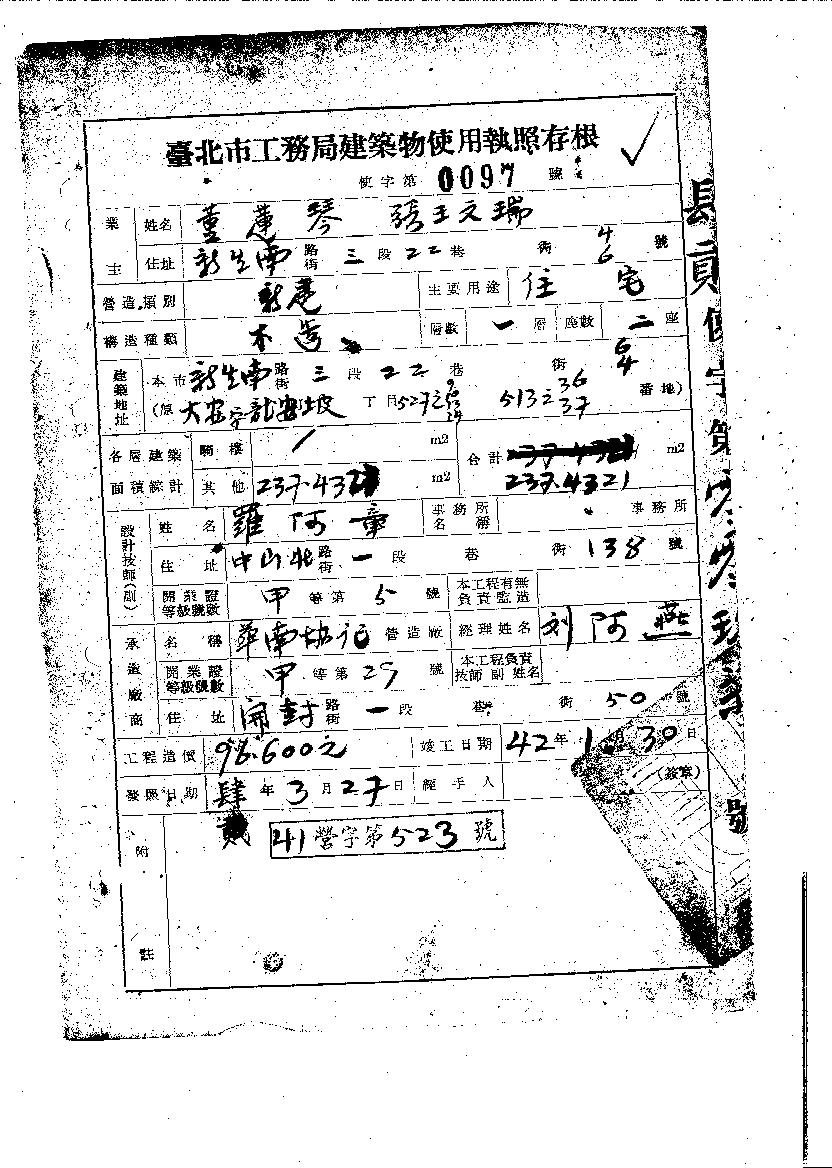 臺北市工務局建築物使用執照存根
使字第 0097 號
業主 姓名 董蓮琴 張王文瑞
住址 新生南 路街 三 段 22 巷 街 4 6 號
營造類別 新建 主要用途 住宅
構造種類 木造 層數 一 層 座數 二 座
建築地址 本市 新生南 路街 三 段 22 巷 街 6 4
(原 大安字龍安坡 丁目 527之 513之 36 37 番地)
各層建築面積綜計 騎樓 / m2 合計 237.4321 m2
其他 237.432 m2 237.4321
設計技師(副) 姓名 羅阿章 事務所名稱 事務所
住址 中山北 路街 一 段 巷 街 138 號
開業證等級號數 甲 等第 5 號 本工程有無負責監造
承造廠商 名稱 華南 營造廠 經理姓名 刘阿燕
開業證等級號數 甲 等第 29 號 本工程負責技師副姓名
住址 開封 路街 一 段 巷 街 50 號
工程造價 98.600元 竣工日期 42年 1月 30日
發照日期 肆貳 年 3 月 27 日 經手人 (簽章)
附註 41營字第523號
字第
號